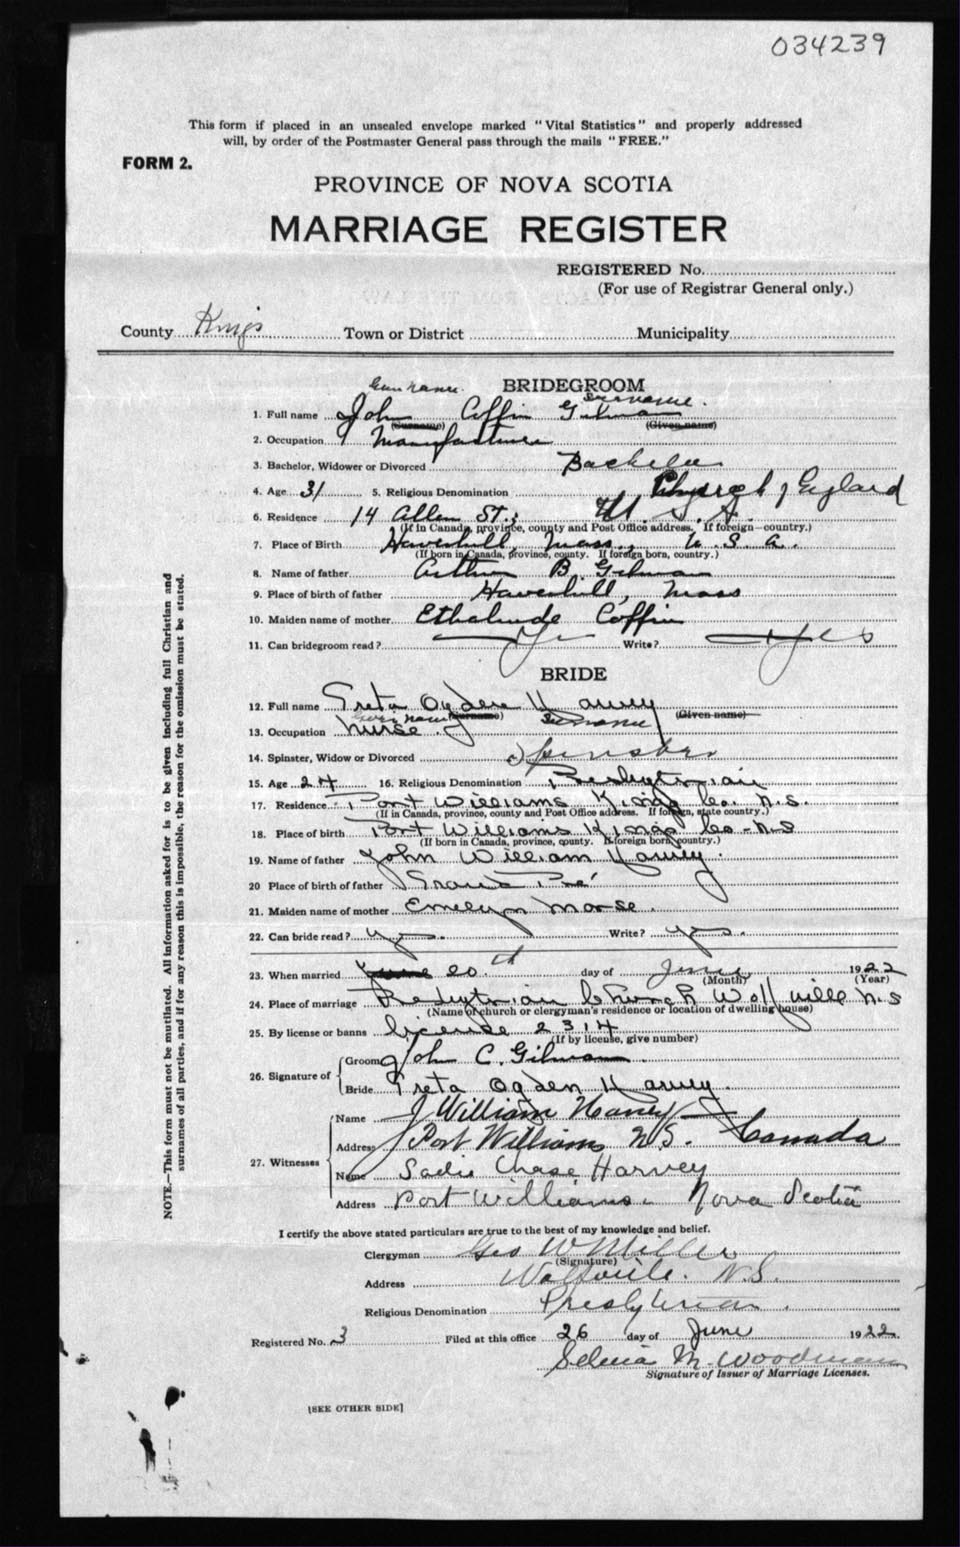 034239
This form if placed in an unsealed envelope marked "Vital Statistics" and properly addressed
will, by order of the Postmaster General pass through the mails "FREE."
FORM 2.
PROVINCE OF NOVA SCOTIA
MARRIAGE REGISTER
REGISTERED No.
(For use of Registrar General only.)
County Kings Town or District Municipality
BRIDEGROOM
Surname.
1. Full name John Coffin Gilman
(Surname) (Given name)
2. Occupation Manufacturer
3. Bachelor, Widower or Divorced Bachelor
4. Age 31 5. Religious Denomination Church of England
6. Residence 14 Allen St., U. S. A.
(If in Canada, province, county and Post Office address. If foreign—country.)
7. Place of Birth Haverhill, Mass., U S A.
(If born in Canada, province, county. If foreign born, country.)
8. Name of father Arthur B. Gilman
9. Place of birth of father Haverhill, Mass
10. Maiden name of mother Ethelinde Coffin
11. Can bridegroom read? Yes Write? Yes
BRIDE
12. Full name Greta Ogden Harvey
Given name (Surname) Surname (Given name)
13. Occupation Nurse
14. Spinster, Widow or Divorced Spinster
15. Age 24 16. Religious Denomination Presbyterian
17. Residence Port Williams Kings Co. N.S.
(If in Canada, province, county and Post Office address. If foreign, state country.)
18. Place of birth Port Williams Kings Co. N.S
(If born in Canada, province, county. If foreign born, country.)
19. Name of father John William Harvey.
20 Place of birth of father Grand Pré
21. Maiden name of mother Emelyn Morse.
22. Can bride read? yes. Write? yes.
23. When married June 20.th day of June 1922
(Month) (Year)
24. Place of marriage Presbyterian Church Wolfville N.S
(Name of church or clergyman's residence or location of dwelling house)
25. By license or banns License 2314
(If by license, give number)
26. Signature of Groom John C. Gilman.
Bride Greta Ogden Harvey.
27. Witnesses Name J William Harvey
Address Port Williams N.S. Canada
Name Sadie Chase Harvey
Address Port Williams. Nova Scotia
I certify the above stated particulars are true to the best of my knowledge and belief.
Clergyman Geo W Miller
(Signature)
Address Wolfville. N.S.
Religious Denomination Presbyterian.
Registered No. 3 Filed at this office 26 day of June 1922.
Selina M. Woodman
Signature of Issuer of Marriage Licenses.
[SEE OTHER SIDE]
NOTE.—This form must not be mutilated. All information asked for is to be given including full Christian and
surnames of all parties, and if for any reason this is impossible, the reason for the omission must be stated.